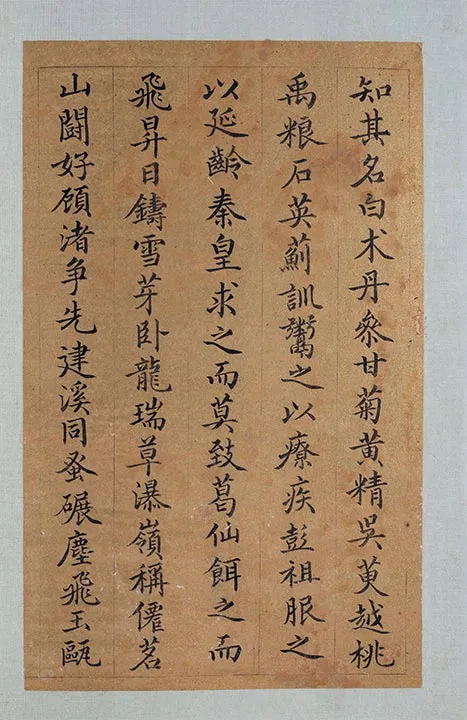 知其名白术丹叅甘菊黄精吳萸越桃
禹粮石英薊訓鬻之以療疾彭祖服之
以延齡秦皇求之而莫致葛仙餌之而
飛昇日鑄雪芽卧龍瑞草瀑嶺稱僊茗
山闘好顧渚争先建溪同蚤碾塵飛玉甌